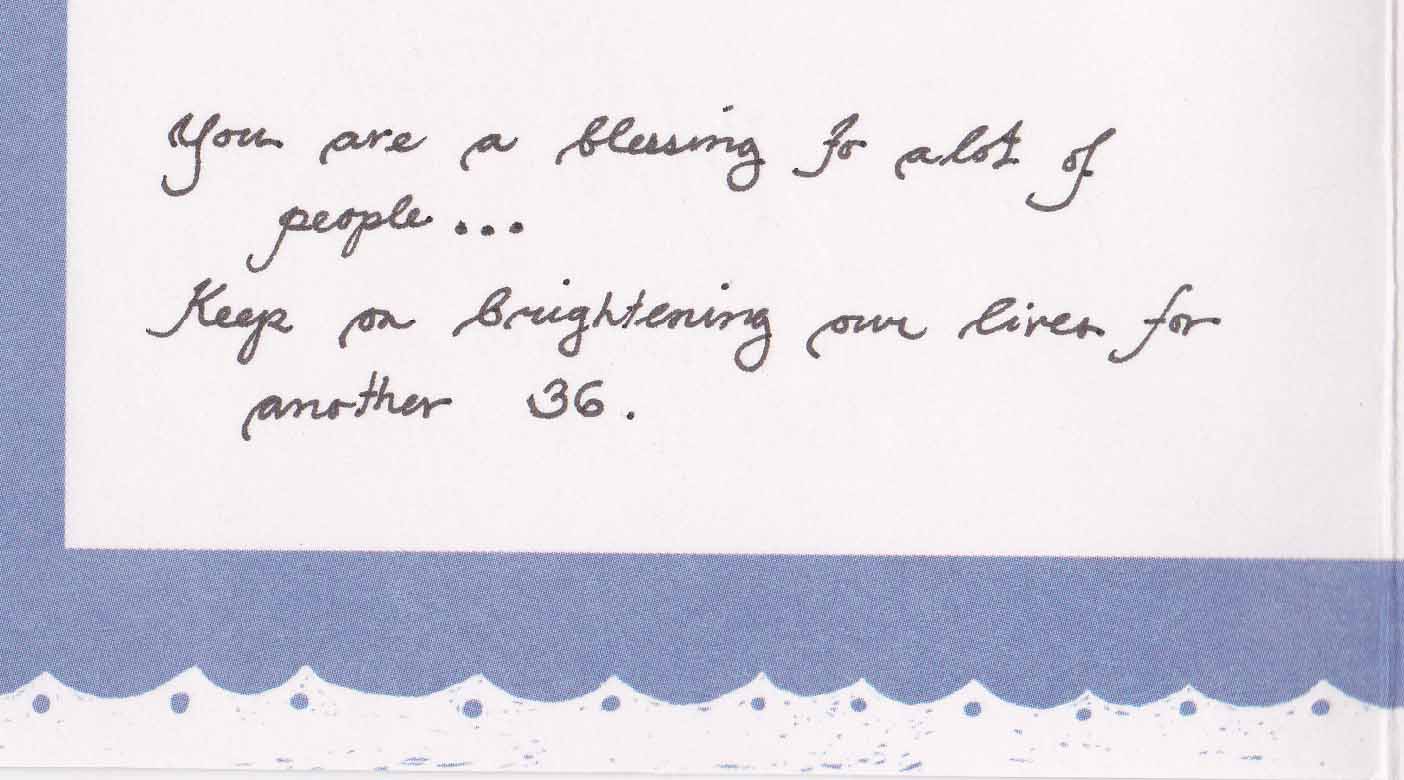 You are a blessing to alot of
people...
Keep on brightening our lives for
another 36.